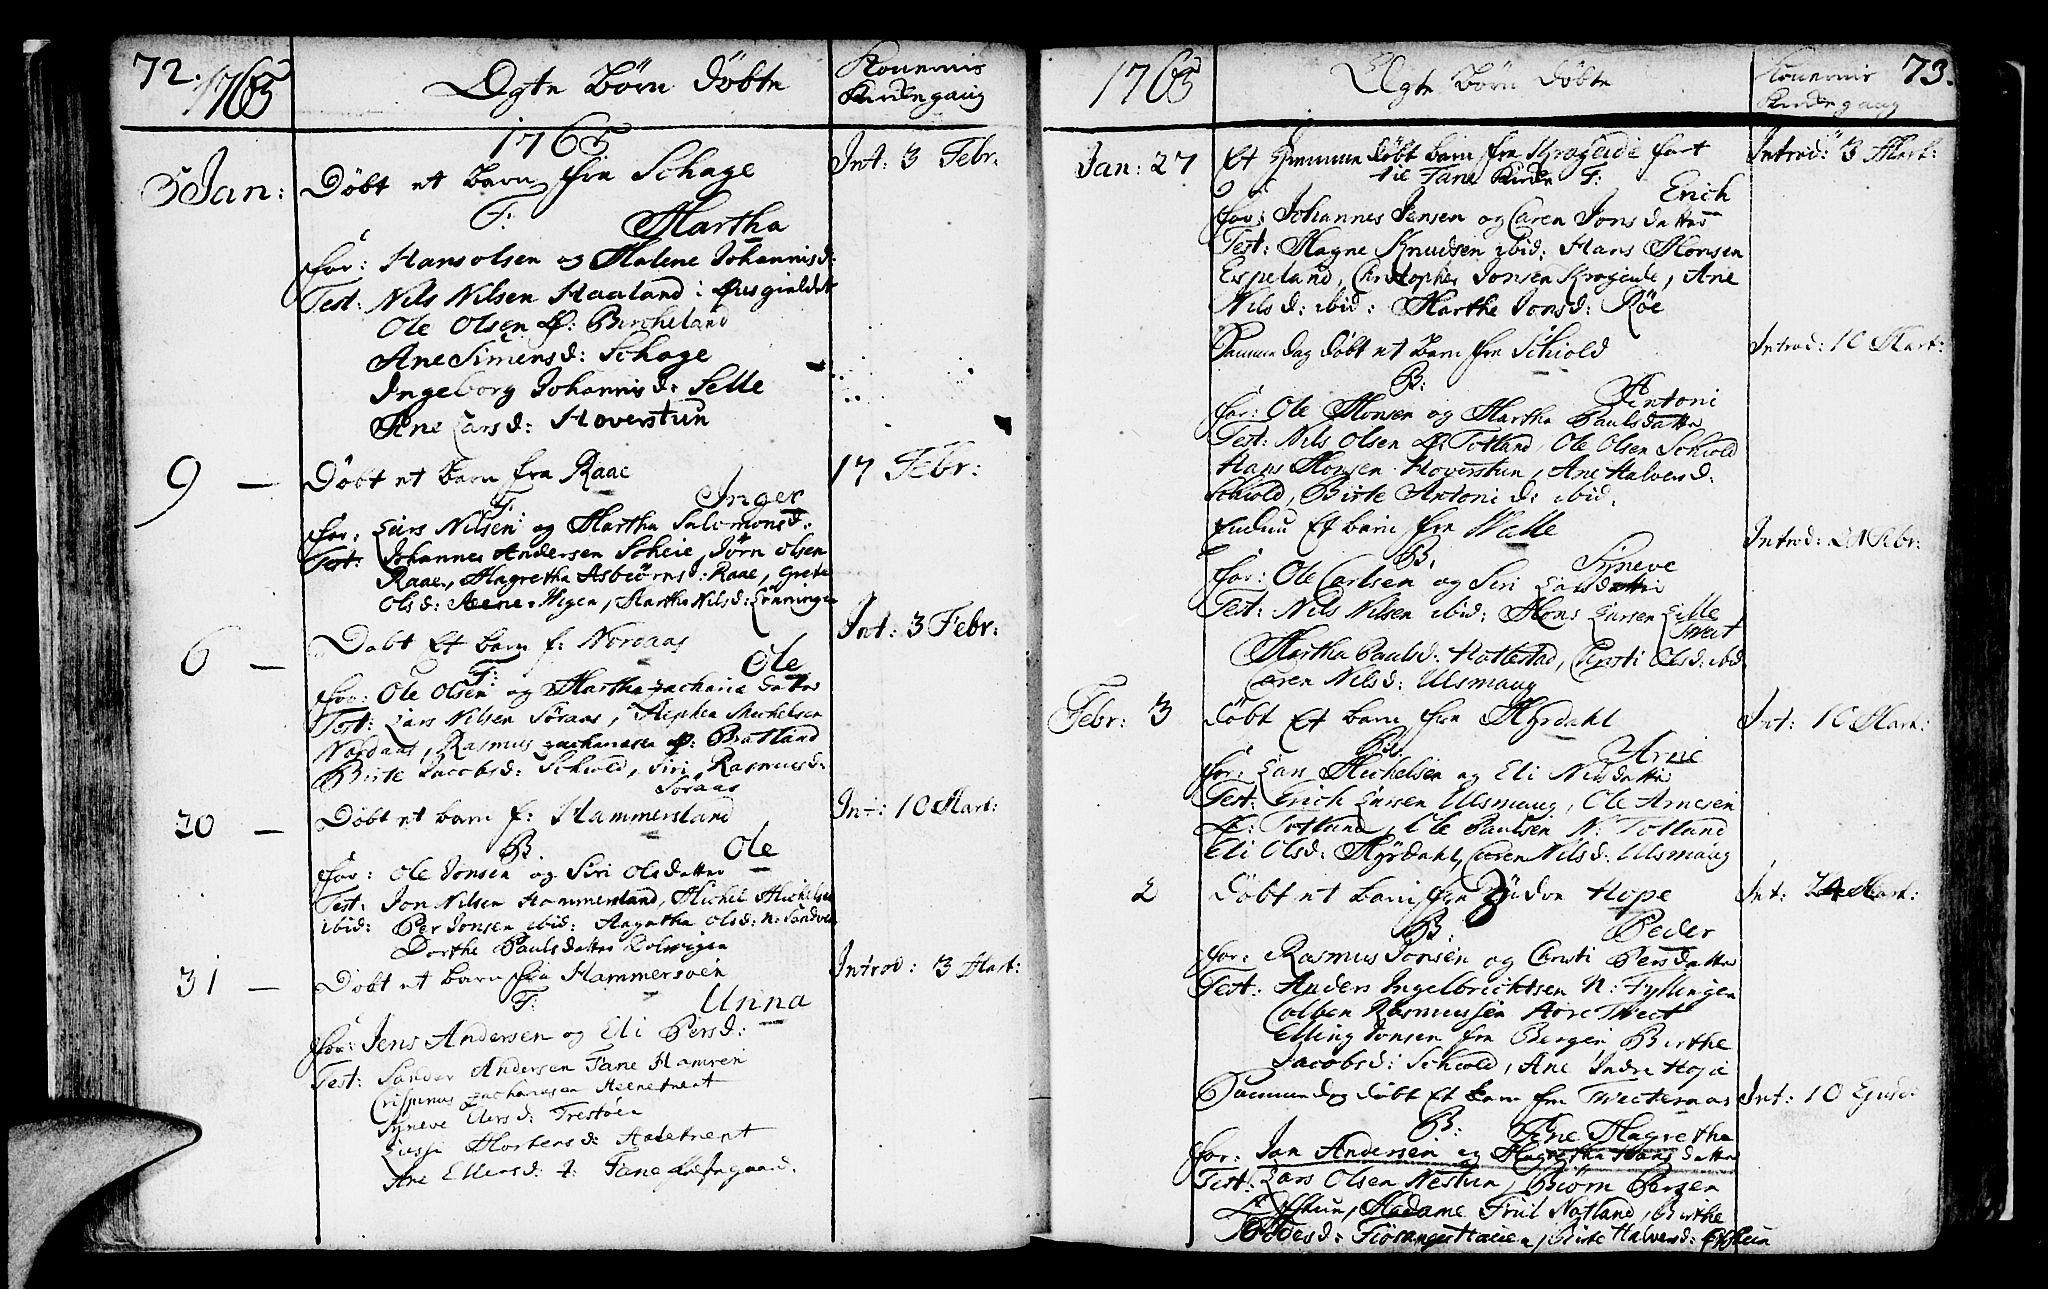 72. 1765 Ægte Børn døbte Konernis
Kirkegang
1765
5 Jan: Døbt et Barn fra Schage Int: 3 Febr:
F: Martha
for: Hans olsen og Malene Johannisd:
Test: Nils Nilsen Haaland: Øusgieldet
Ole Olsen Ø: Bircheland
Ane Simensd: Schage
Ingeborg Johannisd: Selle
Ane Larsd: Hoverstun
9 — Døbt et barn fra Raae 17 Febr:
F: Inger
for: Lars Nilsen og Martha Salomonsd:
Test: Johannes Andersen Scheie, Jørn olsen
Raae, Magretha Asbiørnsd: Raae, Grete
Olsd: Wigen, Martha Nilsd: Lønningen
6 — Døbt Et barn f: Nordaas Int: 3 Febr:
F: Ole
for: Ole Olsen og Martha zacharia datter
Test: Lars Nilsen Søraas, Stephen Michelsen
Nordaas, Rasmus zachariasen Ø: Birkland
Birte Jacobsd: Schiold, Siri Rasmusd:
Søraas
20 — Døbt et barn f: Hammersland Int: 10 Mart:
B. Ole
for: Ole Jonsen og Siri Olsdatter
Test: Jon Nilsen Hammersland, Michel Michelsen
ibid: Per Jonsen ibid: Aagatha Olsd: N: Sandven
Dorthe Paulsdatter Rolvigen
31 — Døbt et barn fra Hammersøen Introd: 3 Mart:
F: Unna
for: Jens Andersen og Eli Persd:
Test: Sander Andersen Fane Hamren
Crispinus zachariasen
Synneve Elersd: Trestøen
Mortensd:
Ane Ellersd: Fane Præstegaard.
1765 Ægte Børn døbte Konernis 73.
Kirkegang
Jan: 27 Et Hiemme døbt barn fra Krogeide ført Introd: 3 Mart:
til Fane Kirke F:
Erich
for: Johannes Jensen og Caren Jonsdatter
Test: Magne Knudsen ibid: Hans Monsen
Espeland, Christopher Jonsen Krogeide, Ane
Nilsd: ibid: Marthe Jonsd: Røe
Samme dag døbt et Barn fra Schiold Introd: 10 Mart:
B: Antoni
for: Ole Monsen og Martha Paulsdatter
Test: Nils Olsen Ø: Totland, Ole Olsen Schiold
Hans Monsen Hoverstun, Ane Halversd:
Schiold, Birte Antoni d: ibid.
Endnu Et barn fra Walle Introd: 21 Febr:
B. Syneve
for: Ole Carlsen og Siri Larsdatter
Test: Nils Nilsen ibid: Mons Larsen Lille
Tweit
Martha Paulsd: Hattestad, Christi Olsd: ibid
Caren Nilsd: Ulsmaug
Febr: 3 Døbt Et barn fra Myrdahl Int: 10 Mart:
B: Arne
for: Lars Michelsen og Eli Nilsdatter
Test: Erich Larsen Ulsmaug, Ole Arnesen
Ø: Totland, Ole Paulsen N: Totland
Eli Olsd: Myrdahl, Caren Nilsd: Ulsmaug
2 Døbt et barn fra Indre Hope Int: 24 Mart:
B: Peder
for: Rasmus Jonsen og Christi Persdatter
Test: Anders Ingelbrichtsen N: Fyllingen
Colben Rasmussen Aore Tweet
Elling Jonsen fra Bergen Birthe
Jacobsd: Schiold, Ane Indre Hope
Samme dag døbt Et barn fra Tweteraas Int: 10 Ejusd:
B: Fine Magretha
for: Jan Andersen og Magretha Hans datter
Test: Lars Olsen Nestun, Biørn Persen
Øffstun, Madame Friil Natland, Birthe
Fiøsanger Hauen, Birte Halversd: Øfstun